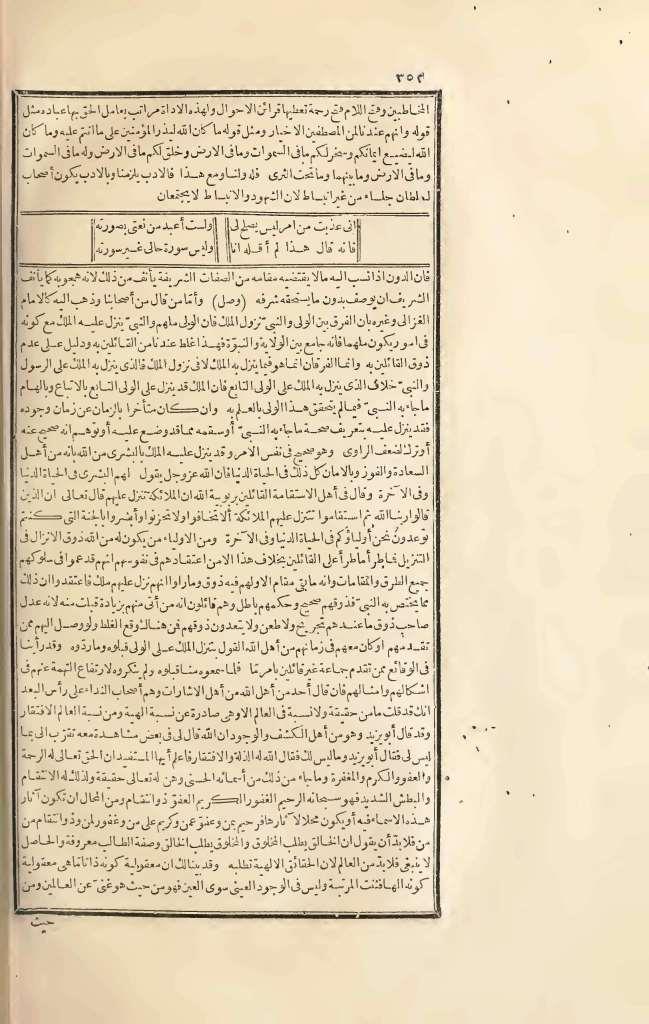 ٣٥٣
المخاطبين وفتح اللام فتح رحمة تعطيها قرائن الاحوال ولهذه الاداة مراتب يعامل الحق بها عباده مثل
قوله وانهم عندنا لمن المصطفين الاخيار ومثل قوله ما كان الله ليذر المؤمنين على ما انتم عليه وما كان
الله ليضيع ايمانكم وسخر لكم ما فى السموات وما فى الارض وخلق لكم ما فى الارض وله ما فى السموات
وما فى الارض وما بينهما وما تحت الثرى فله ولنا ومع هذا فالادب يلزمنا وبالادب يكون أصحاب
لسلطان جلساء من غير انبساط لان الشهود والانبساط لا يجتمعان
انى عذبت من امر ليس يصلح لى ولست أعبد من نعتى بصورته
فانه قال هذا لم أقله انا وليس سورة حالى غير سورته
فان الدون اذا نسب اليه ما لا يقتضيه مقامه من الصفات الشريفة يأنف من ذلك لانه هجو به كما يأنف
الشريف ان يوصف بدون ما يستحقه شرفه (وصل) وأما من قال من أصحابنا وذهب اليه كالامام
الغزالى وغيره بان الفرق بين الولى والنبىّ نزول الملك فان الولى ملهم والنبىّ ينزل عليه الملك مع كونه
فى امور يكون ملهما فانه جامع بين الولاية والنبوّة فهذا غلط عندنا من القائلين به ودليل على عدم
ذوق القائلين به وانما الفرقان انما هو فيما ينزل به الملك لا فى نزول الملك فالذى ينزل به الملك على الرسول
والنبىّ خلاف الذى ينزل به الملك على الولى التابع فان الملك قد ينزل على الولى التابع بالاتباع وبالهام
ما جاء به النبىّ فيما لم يتحقق هذا الولى بالعلم به وان كان متأخرا بالزمان عن زمان وجوده
فقد ينزل عليه بتعريف صحة ما جاء به النبىّ أو سقمه مما قد وضع عليه أو توهم انه صحيح عنه
أو ترك لضعف الراوى وهو صحيح فى نفس الامر وقد ينزل عليه الملك بالبشرى من الله بانه من أهل
السعادة والفوز وبالامان كل ذلك فى الحياة الدنيا فان الله عز وجل يقول لهم البشرى فى الحياة الدنيا
وفى الآخرة وقال فى أهل الاستقامة القائلين بربوبية الله ان الملائكة تنزل عليهم قال تعالى ان الذين
قالوا ربنا الله ثم استقاموا تتنزل عليهم الملائكة ألا تخافوا ولا تحزنوا وأبشروا بالجنة التى كنتم
توعدون نحن أولياؤكم فى الحياة الدنيا وفى الآخرة ومن الاولياء من يكون له من الله ذوق الانزال فى
التنزيل فما طرأ ما طرأ على القائلين بخلاف هذا الا من اعتقادهم فى نفوسهم انهم قد عموا فى سلوكهم
جميع الطرق والمقامات وانه ما بقى مقام الا ولهم فيه ذوق وما رأوا انهم نزل عليهم ملك فاعتقدوا ان ذلك
مما يختص به النبىّ فذوقهم صحيح وحكمهم باطل وهم قائلون انه من أتى منهم بزيادة قبلت منه لانه عدل
صاحب ذوق ما عندهم تجريح ولا طعن ولا يتعدون ذوقهم فن هنالك وقع الغلط ولو وصل اليهم ممن
تقدمهم أو كان معهم فى زمانهم من أهل الله القول بتنزل الملك على الولى قبلوه وما ردّوه وقد رأينا
فى الوقائع ممن تقدم جماعة غير قائلين بامر ما فلما سمعوه منا قبلوه ولم ينكروه لارتفاع التهمة عنهم فى
اشكالهم وامثالهم فان قال أحد من أهل الله من أهل الاشارات وهم أصحاب النداء على رأس البعد
انك قد قلت ما من حقيقة ولا نسبة فى العالم الا وهى صادرة عن نسبة الهية ومن نسبة العالم الافتقار
وقد قال أبو يزيد وهو من أهل الكشف والوجود ان الله قال لى فى بعض مشاهدة معه تقرّب الىّ بما
ليس لى فقال أبو يزيد وما ليس لك فقال الله له الذلة والافتقار فاعلم أيها المستفيد ان الحق تعالى له الرحمة
والعفو والكرم والمغفرة وما جاء من ذلك من أسمائه الحسنى وهى له تعالى حقيقة ولذلك له الانتقام
والبطش الشديد فهو سبحانه الرحيم الغفور الكريم العفوّ ذو انتقام ومن المحال ان تكون آثار
هذه الاسماء فيه أو يكون محلا لآثارها فرحيم بمن وعفوّ عمن وكريم على من وغفور لمن وذو انتقام من
من فلا بدّ أن يقول ان الخالق يطلب المخلوق والمخلوق يطلب الخالق وصفة الطالب معروفة والحاصل
لا يبتغى فلا بدّ من العالم لان الحقائق الالهية تطلبه وقد بينا لك ان معقولية كونه ذاتا ما هى معقولية
كونه الها فثنت المرتبة وليس فى الوجود العينى سوى العين فهو من حيث هو غنىّ عن العالمين ومن
حيث